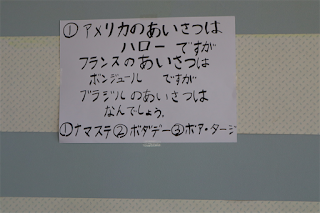 ① アメリカのあいさつは
ハロー ですが
フランスのあいさつは
ボンジュール ですが
ブラジルのあいさつは
なんでしょう。
①ナマステ②ボダデー③ボア・タージ